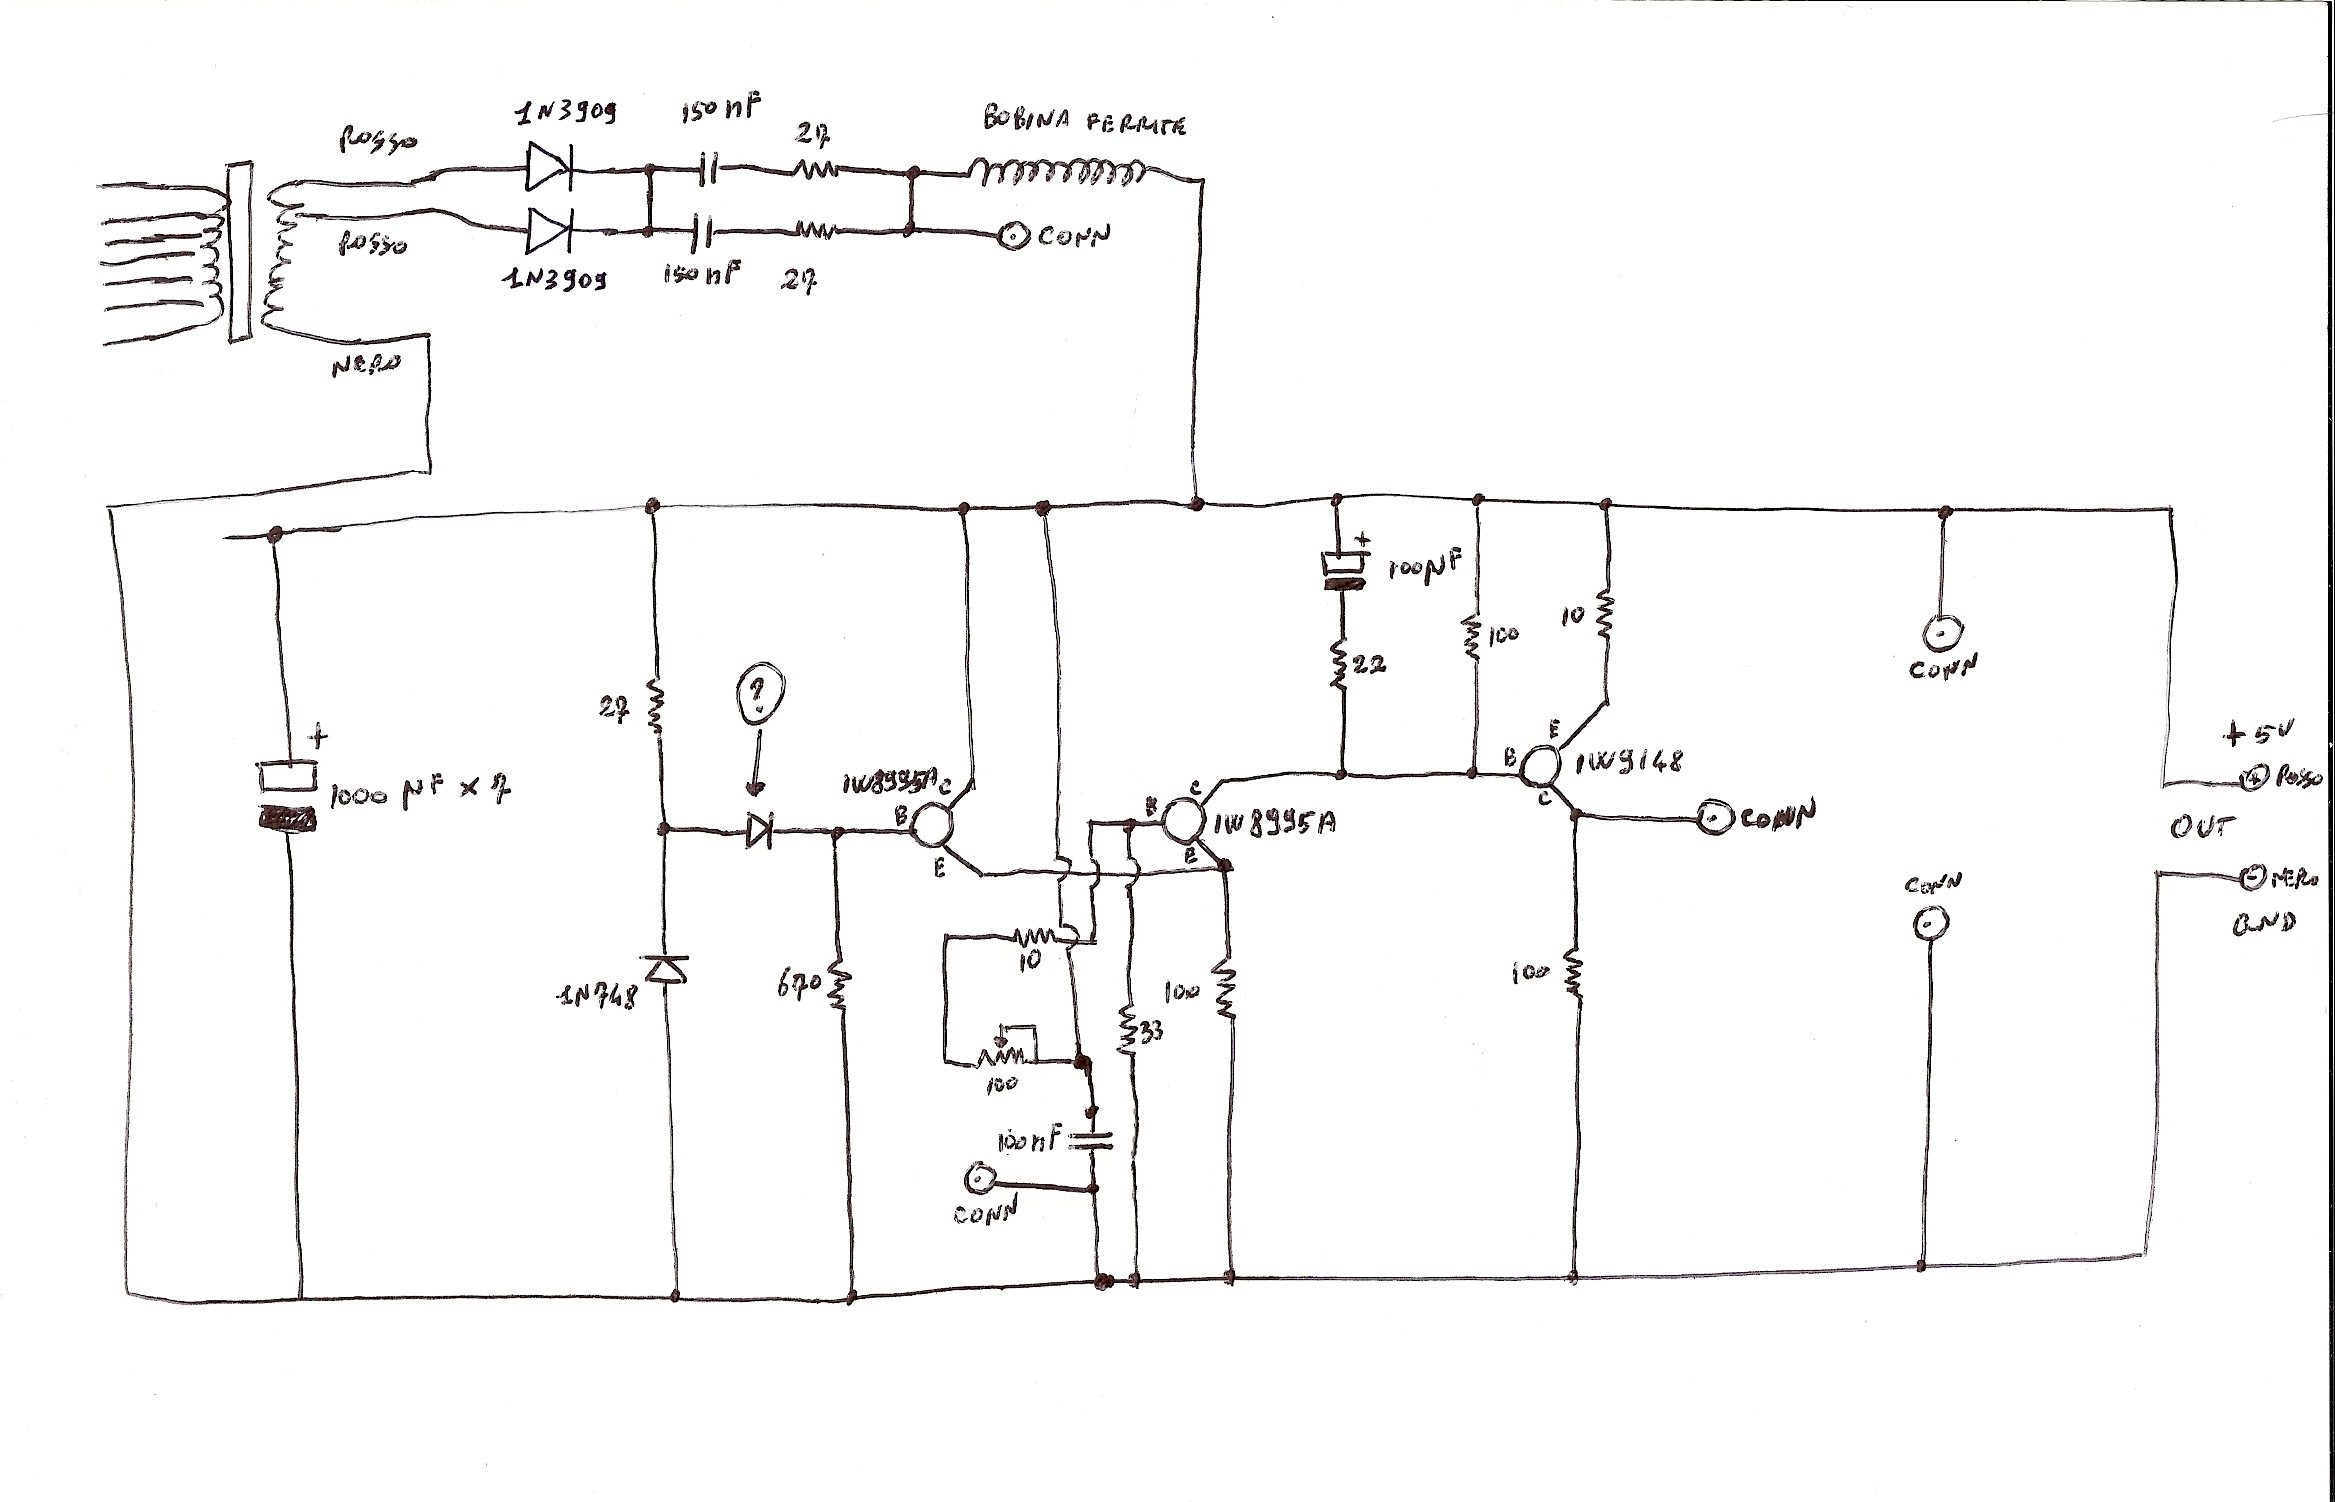 1N3909
150 nF
27
BOBINA FERRITE
ROSSO
ROSSO
CONN
1N3909
150 nF
27
NERO
+
100µF
10
100
22
CONN
27
?
+
1000 µF x 7
1W8995A
C
B
E
E
B
1W9148
C
CONN
+ 5V
+
ROSSO
OUT
C
B
1W8995A
E
CONN
-
NERO
GND
10
1N748
670
100
33
100
100
100nF
CONN